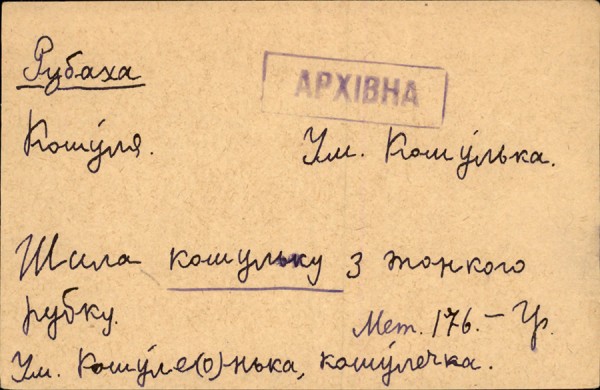 Рубаха
АРХІВНА
Кошу́ля. Ум. Кошу́лька.
Шила кошульку з тонкого
рубку. Мет. 176. – Гр.
Ум. Кошу́ле(о)нька, кошу́лечка.